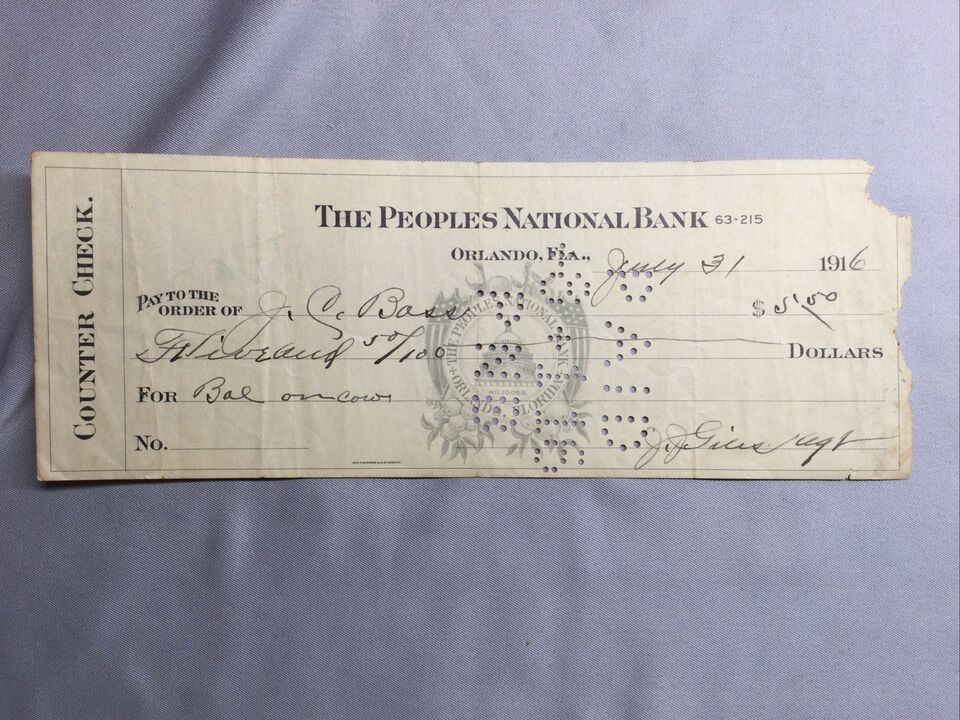 COUNTER CHECK.
THE PEOPLES NATIONAL BANK 63-215
ORLANDO, FLA., July 31 1916
PAY TO THE ORDER OF J. C. Bass $ 5.50
Five and 50/100 DOLLARS
FOR Bal on cow
No.
J. J. Giles Agt
THE PEOPLES NATIONAL BANK
ORLANDO, FLORIDA
NO. 10069